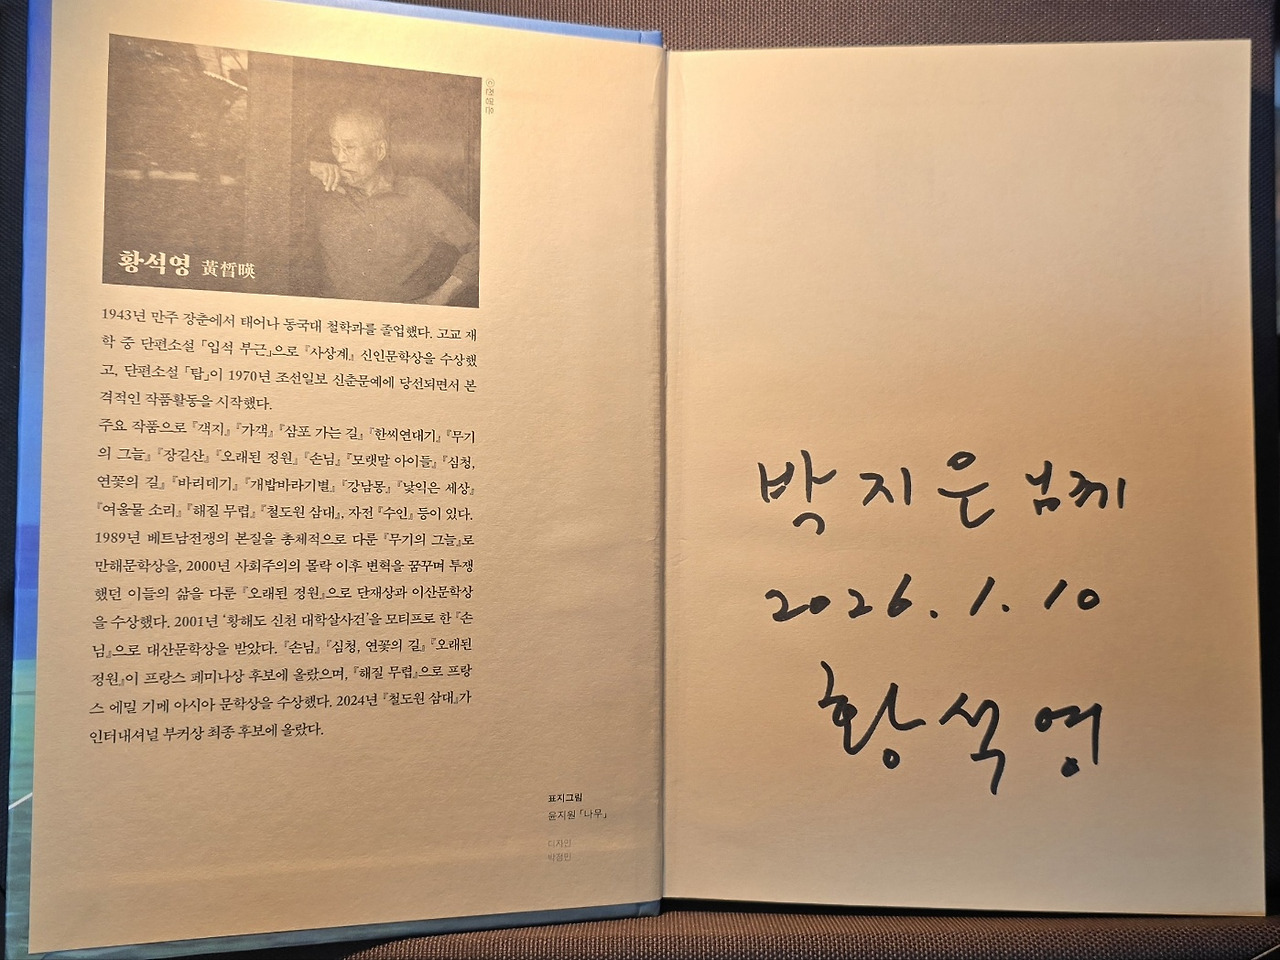 ⓒ전명은
황석영 黃晳暎
1943년 만주 장춘에서 태어나 동국대 철학과를 졸업했다. 고교 재
학 중 단편소설 「입석 부근」으로 『사상계』 신인문학상을 수상했
고, 단편소설 「탑」이 1970년 조선일보 신춘문예에 당선되면서 본
격적인 작품활동을 시작했다.
주요 작품으로 『객지』 『가객』 『삼포 가는 길』 『한씨연대기』 『무기
의 그늘』 『장길산』 『오래된 정원』 『손님』 『모랫말 아이들』 『심청,
연꽃의 길』 『바리데기』 『개밥바라기별』 『강남몽』 『낯익은 세상』
『여울물 소리』 『해질 무렵』 『철도원 삼대』, 자전 『수인』 등이 있다.
1989년 베트남전쟁의 본질을 총체적으로 다룬 『무기의 그늘』로
만해문학상을, 2000년 사회주의의 몰락 이후 변혁을 꿈꾸며 투쟁
했던 이들의 삶을 다룬 『오래된 정원』으로 단재상과 이산문학상
을 수상했다. 2001년 ‘황해도 신천 대학살사건’을 모티프로 한 『손
님』으로 대산문학상을 받았다. 『손님』 『심청, 연꽃의 길』 『오래된
정원』이 프랑스 페미나상 후보에 올랐으며, 『해질 무렵』으로 프랑
스 에밀 기메 아시아 문학상을 수상했다. 2024년 『철도원 삼대』가
인터내셔널 부커상 최종 후보에 올랐다.
표지그림
윤지원 「나무」
디자인
박정민
박지은 님께
2026. 1. 10
황석영